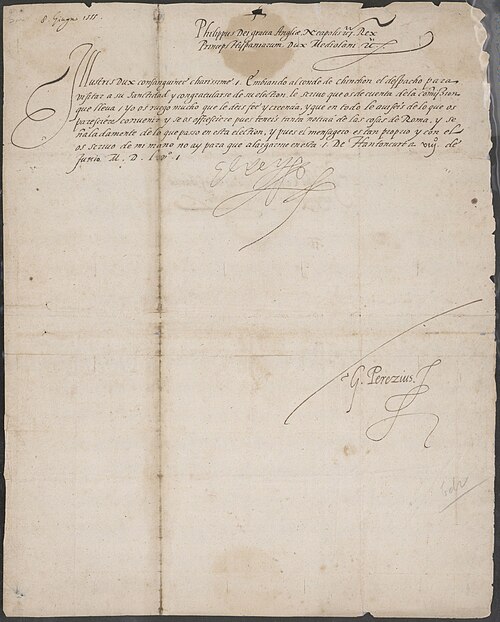 8 Giugno 1555.
Philippus Dei gratia Angliæ, Neapolis etc. Rex
Princeps Hispaniarum. Dux Mediolani etc.
Illustris Dux consanguinee charissime. Embiando al conde de chinchon el despacho para
visitar a su Sanctidad y congratularse de su election, le scriuo que os de cuenta de la comission
que lleua, Yo os ruego mucho que le deis fee y creencia, y que en todo le auiseis de lo que os
paresciere conuenir y se os offresciere pues teneis tanta noticia de las cosas de Roma, y se
ñaladamente de lo que passo en esta election, y pues el mensagero es tan propio y con el
os scriuo de mi mano no ay para que alargarme en esta, De Hantoncurt a viij. de
Junio. M. D. lv.
G. Perezius.